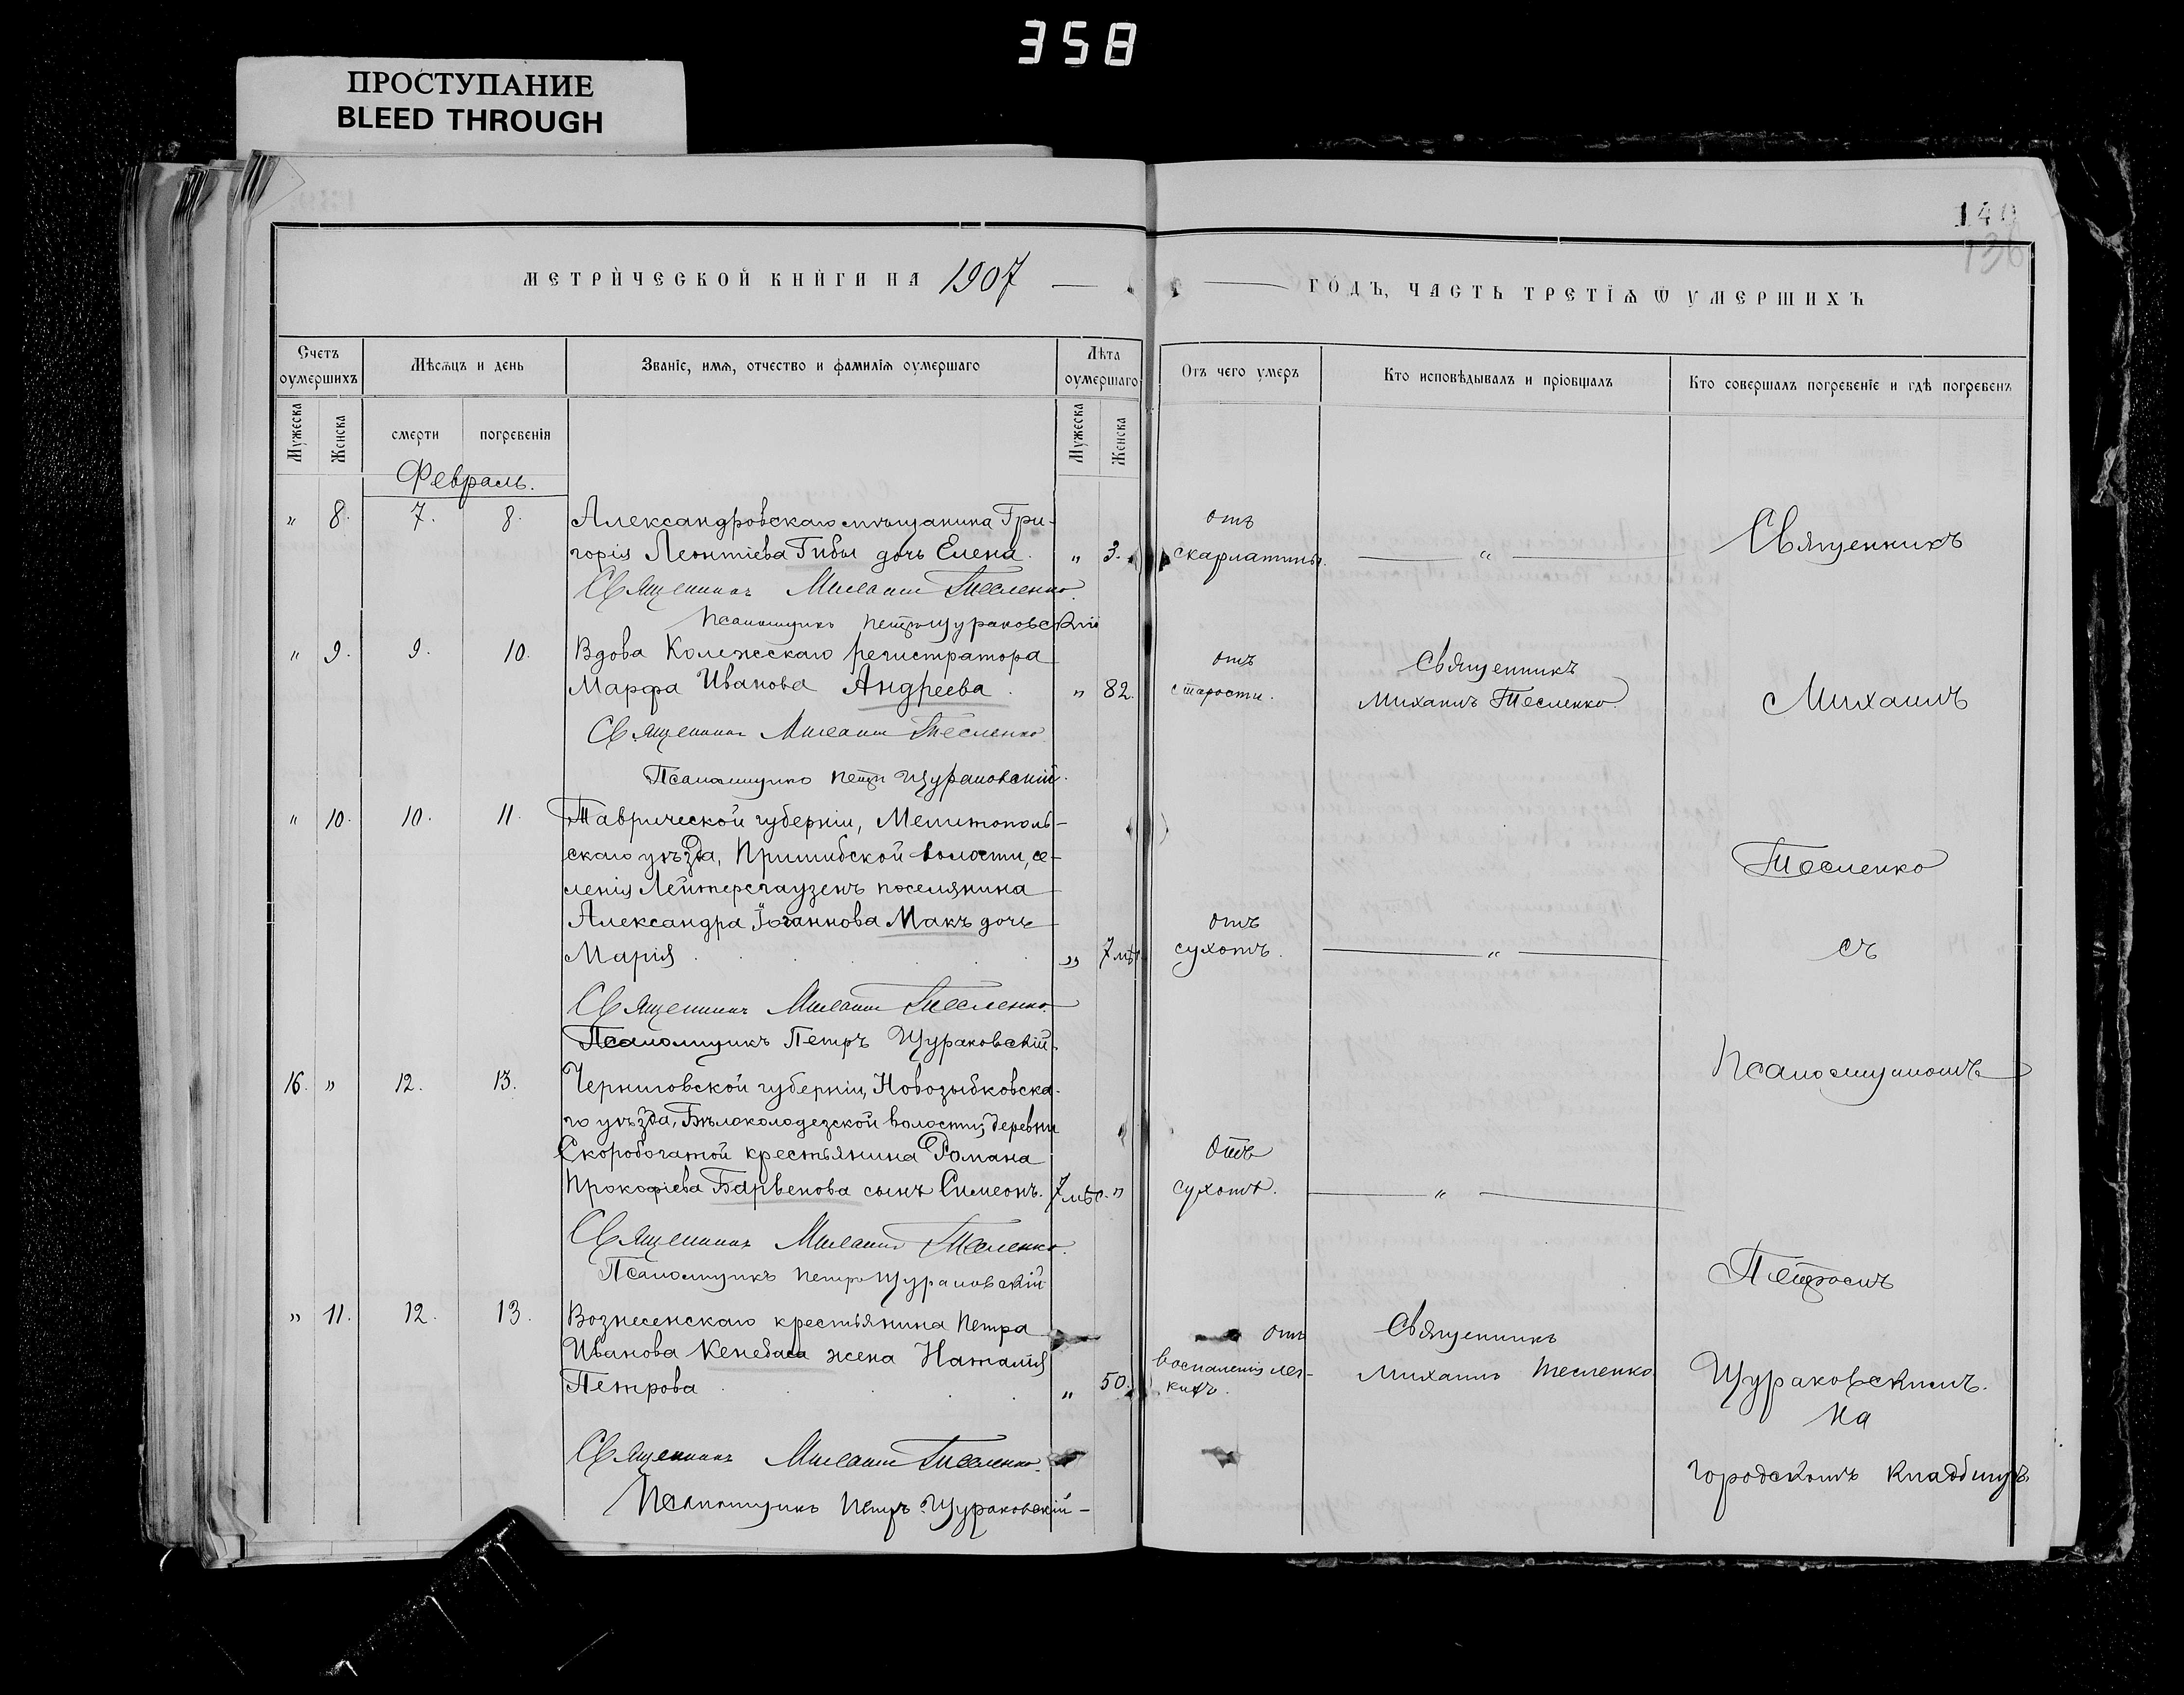 358
ПРОСТУПАНИЕ
BLEED THROUGH
140
136
МЕТРИЧЕСКОЙ КНИГИ НА 1907
ГОДЪ, ЧАСТЬ ТРЕТІѦ Ѿ УМЕРШИХЪ
Счетъ оумершихъ
Мѣсѧцъ и день
Званіе, имѧ, отчество и фамиліѧ оумершаго
Лѣта оумершаго
Отъ чего умеръ
Кто исповѣдывалъ и пріобщалъ
Кто совершалъ погребеніе и гдѣ погребенъ
Мужеска
Женска
смерти
погребенія
Мужеска
Женска
Февраль.
" 8. 7. 8. Александровскаго мѣщанина Гри-
горія Леонтіева Гибы дочь Елена. " 3.
отъ
скарлатины.
"
Священникъ Михаилъ Тесленко.
Псаломщикъ Петръ Щураковскій
" 9. 9. 10. Вдова Колежскаго регистратора
Марфа Иванова Андреева. " 82.
отъ
старости.
Священникъ
Михаилъ Тесленко.
Священникъ Михаилъ Тесленко.
Псаломщикъ Петръ Щураковскій.
" 10. 10. 11. Таврической губерніи, Мелитополь-
скаго уѣзда, Пришибской волости, се-
ленія Лейтерсгаузенъ поселянина
Александра Іоганнова Макъ дочь
Марія. " 7 мѣс.
отъ
сухотъ.
"
Священникъ Михаилъ Тесленко.
Псаломщикъ Петръ Щураковскій.
16. " 12. 13. Черниговской губерніи, Новозыбковска-
го уѣзда, Бѣлоколодезской волости, деревни
Скоробогатой крестьянина Романа
Прокофіева Барвенова сынъ Симеонъ. 7 мѣс. "
Отъ
сухотъ.
"
Священникъ Михаилъ Тесленко.
Псаломщикъ Петръ Щураковскій
" 11. 12. 13. Вознесенскаго крестьянина Петра
Иванова Кенебаса жена Наталія
Петрова. " 50.
отъ
воспаленія лег-
кихъ.
Священникъ
Михаилъ Тесленко.
Священникъ Михаилъ Тесленко.
Псаломщикъ Петръ Щураковскій
Священникъ
Михаилъ
Тесленко
съ
Псаломщикомъ
Петромъ
Щураковскимъ.
на
городскомъ кладбищѣ